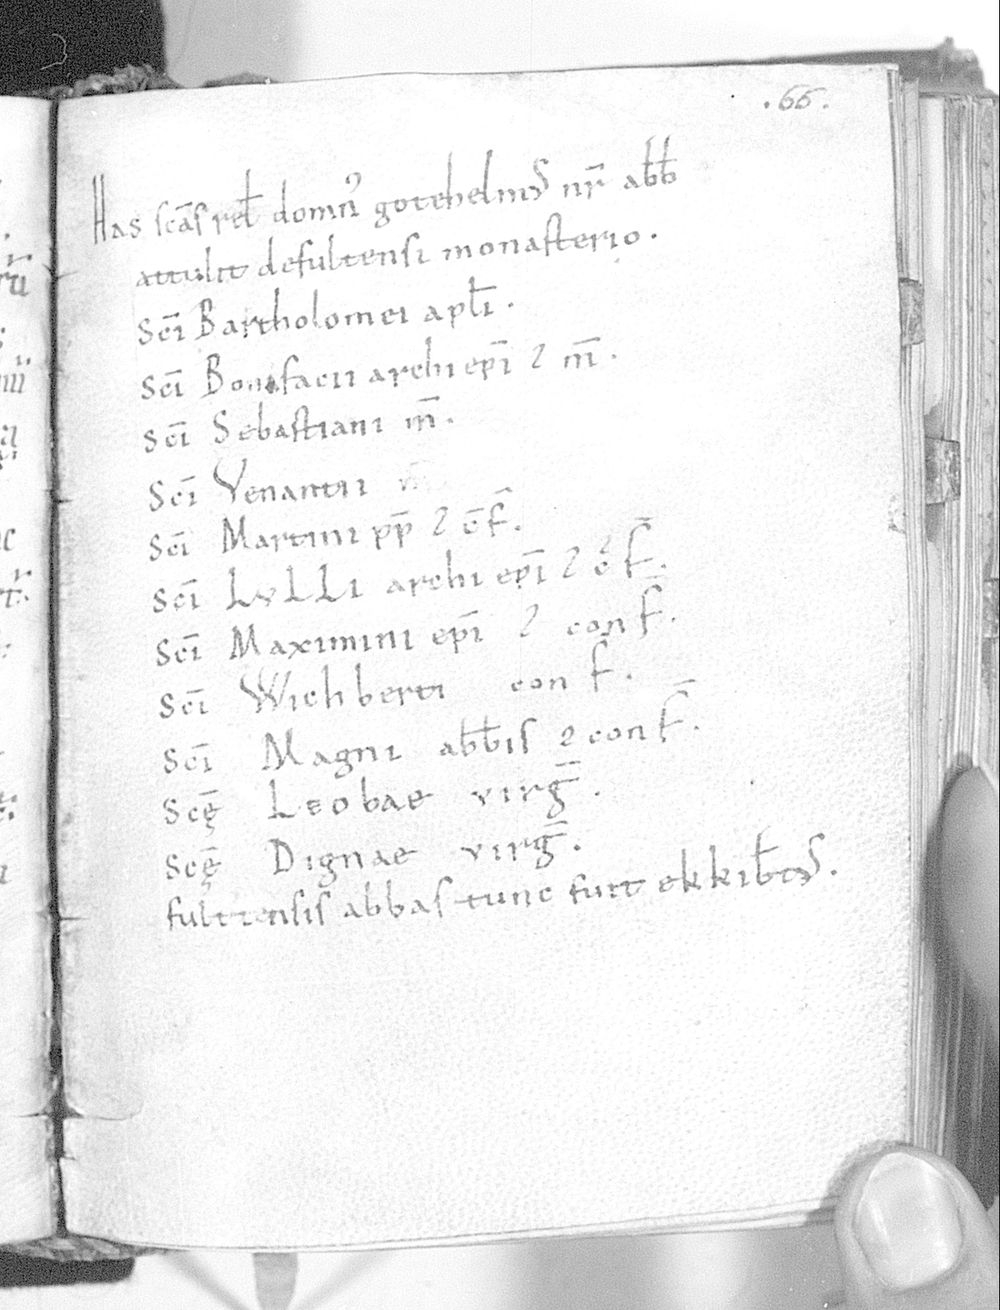 .66.
Has scãs rel̃ domn᾿ gotehelm᾿ nr̃ ab̃b
attulit defultensi monasterio.
Sc̄i Bartholomei apl̄i.
Sc̄i Bonifacii archi ep̄i ⁊ m̄.
Sc̄i Sebastiani m̄.
Sc̄i Venantii m̄
Sc̄i Martini pp̄ ⁊ c̄f.
Sc̄i LvLLi archi ep̄i ⁊ c̄f.
Sc̄i Maximini ep̄i ⁊ conf̄.
Sc̄i Wichberti conf.
Sc̄i Magni abb̄is ⁊ conf̄.
Sc̄ę Leobae virḡ.
Sc̄ę Dignae virḡ.
fultensis abbas tunc fuit ekkib̄t᾿.